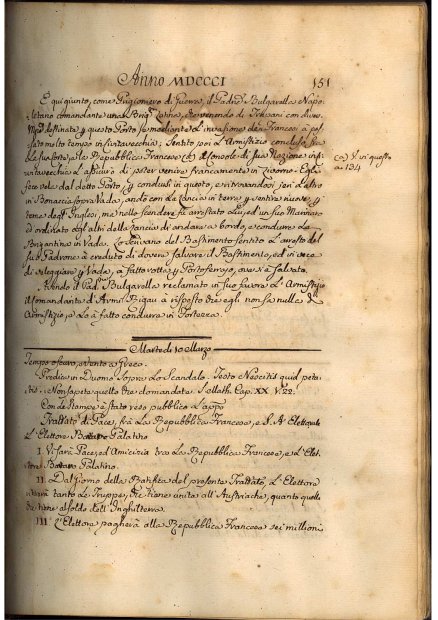 Anno MDCCCI
151
È qui giunto, come Prigioniero di Guerra, il Padrẽ Bulgarella Napo-
letano comandante una Brigantina, che venendo di Trapani con
destinata p questo Porto mediante l'invasione de Francesi à pas-
sato molto tempo in Civitavecchia; Sentito poi l'Armistizio concluso fra
le sue Arme, e la Repubblica Francese (a) il Console di sua Nazione in Ci-
vitavecchia l'assicurò di poter venire francamente in Livorno. Egli
fece vela dal detto Porto p condursi in questo, e ritrovandosi jeri l'altro
in Bonaccia sopra Vada, andò con la Lancia in terra p sentire nuove p
tema degl'Inglesi, ma nello scendere fu arrestato Lui, ed un suo Marinaro
ed ordinato agl'altri della Lancia di andare a bordo, e condurre la
Brigantina in Vada. Lo Scrivano del Bastimento sentito l'arresto del
suo Padrone à creduto di dovere salvare il Bastimento, ed in vece
di veleggiare p Vada, à fatto rotta p Portoferrajo, ove si è salvato.
Avendo il Padrẽ Bulgarella reclamato in suo favore l'Armistizio
il Comandante d'Armi Bigau à risposto che egli non sa nulla di
Armistizio, e lo à fatto condurre in Fortezza.
(a) V. in questo
a 134
Martedi 10 Marzo
Tempo oscuro, e vento a Greco.
Predica in Duomo Sopra: Lo Scandalo. Testo Nescitis quid peta-
tis: Non sapete quello che domandate S. Matth. Cap. XX V. 22.
Con le stampe è stato reso pubblico l'appo
Trattato di Pace, frà la Repubblica Francese, e S. A. Elettorale
L'Elettore Bavaro Palatino
I. Vi sarà Pace, ed Amicizia tra la Repubblica Francese, e l'Elet-
tore Bavaro Palatino.
II. Dal Giorno della Ratifica del presente Trattato, l'Elettore
ritirerà tanto le Truppe, che tiene unite all'Austriache, quanto quelle
che tiene al soldo dell'Inghilterra.
III. L'Elettore pagherà alla Repubblica Francese sei milioni